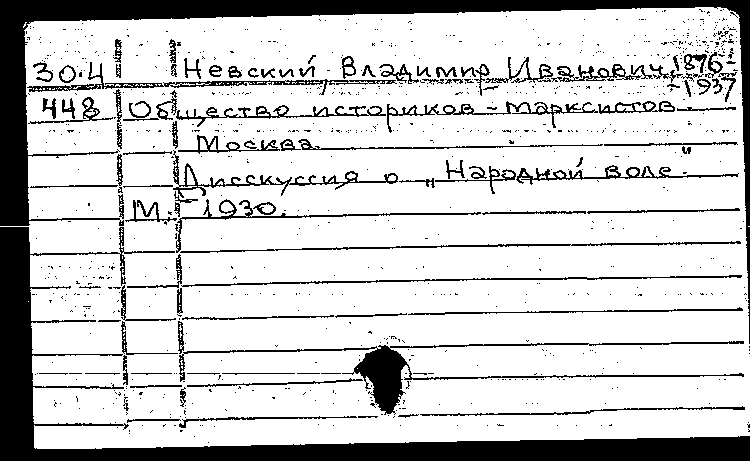 30.4 Невский, Владимир Иванович, 1876-
-1937
448 Общество историков-марксистов.
Москва.
Дисскуссия о „Народной воле".
М.- 1930.